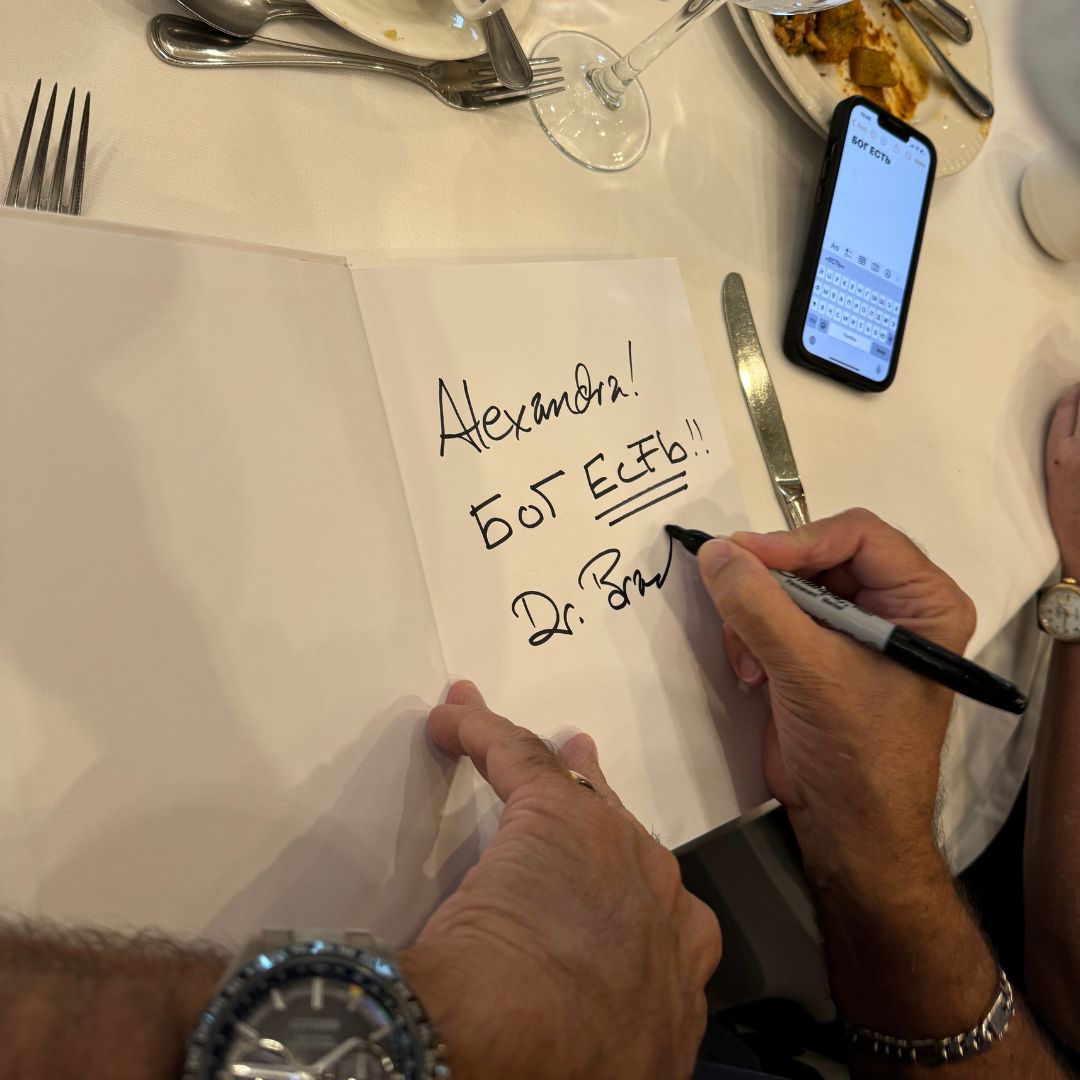 БОГ ЕСТЬ
Alexandra!
БОГ ЕСТЬ!!
Dr. Brad
CITIZEN